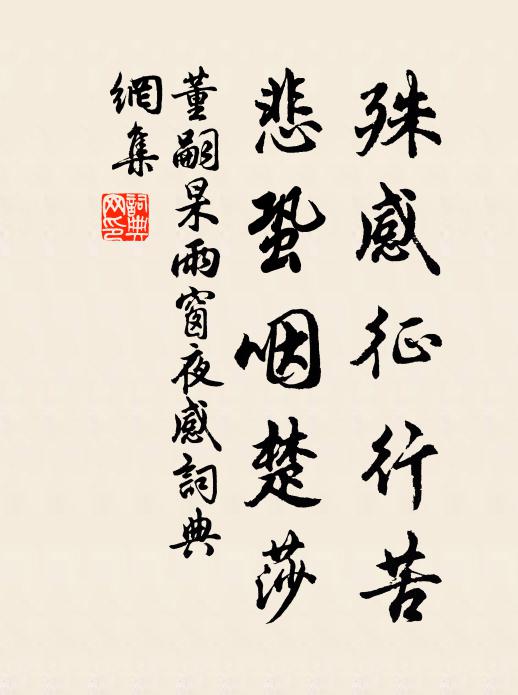 殊感征行苦
悲蛩咽楚莎
董嗣杲雨窗夜感詞典
網集
詞典网印